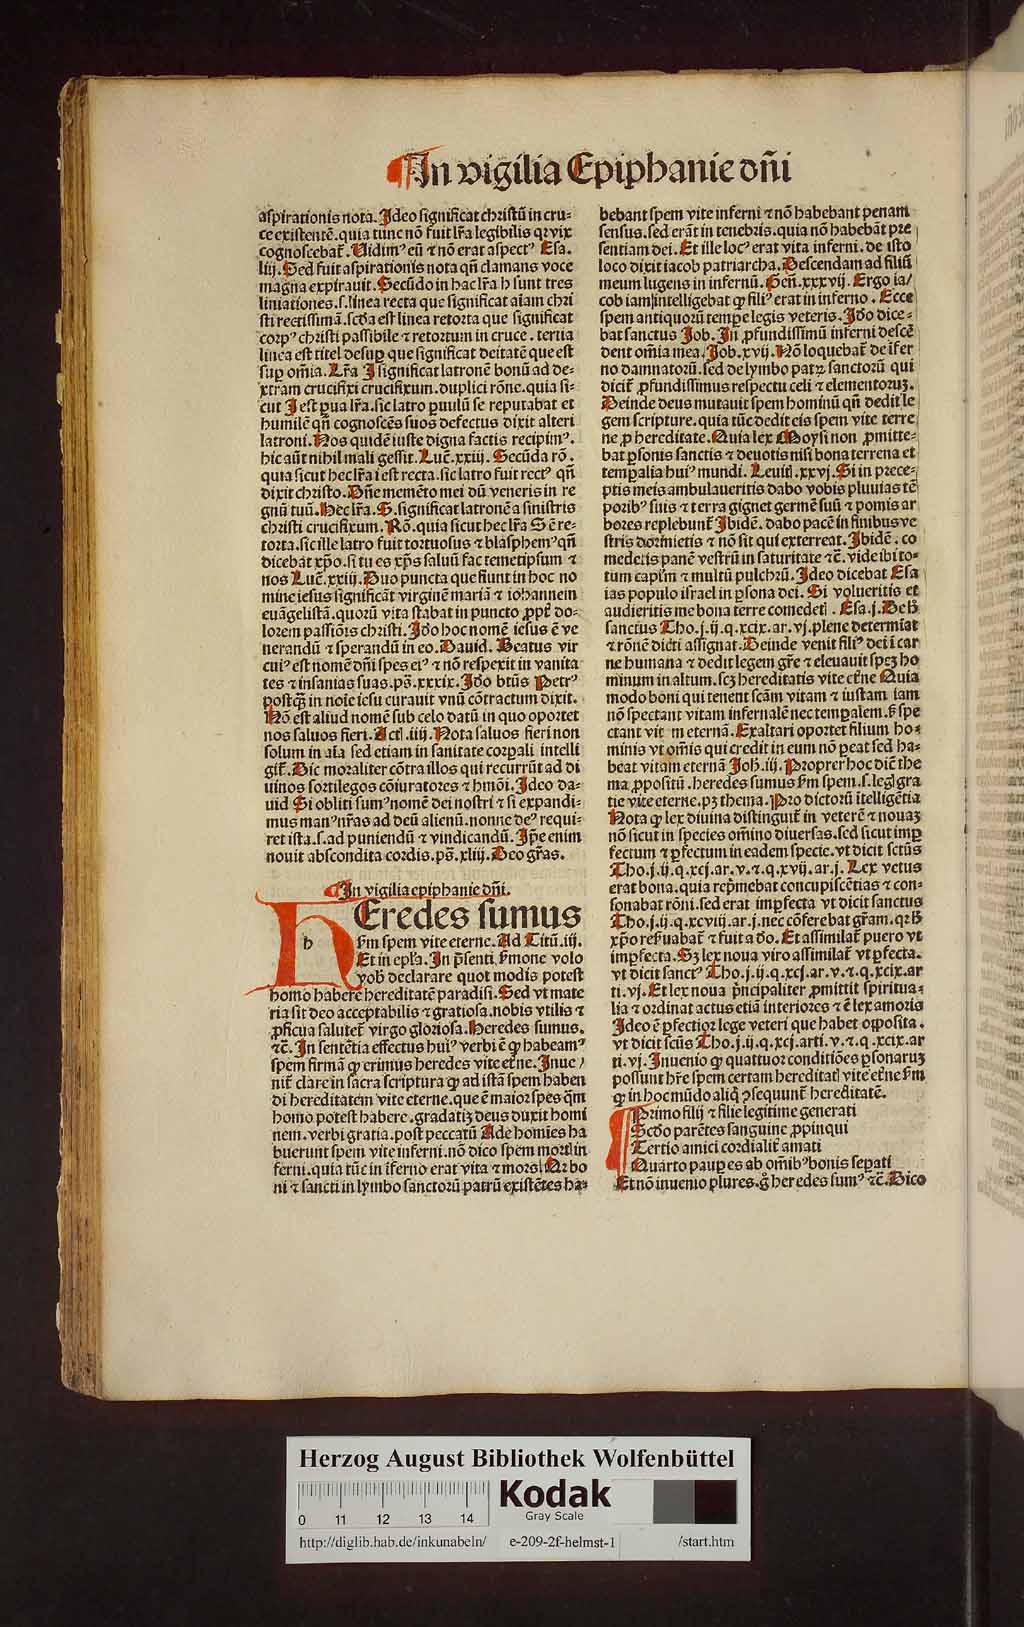 ¶In vigilia Epiphanie dñi
aspirationis nota. Ideo significat christū in cru-
ce existentē. quia tunc nō fuit lr̄a legibilis qr vix
cognoscebat̄. Vidimꝰ eū ⁊ nō erat aspectꝰ Esa.
liij. Sed fuit aspirationis nota qñ clamans voce
magna expirauit. Secūdo in hac lr̄a h sunt tres
liniationes. s. linea recta que significat aīam chri
sti rectissimā. scd̄a est linea retorta que significat
corpꝰ christi passibile ⁊ retortum in cruce. tertia
linea est titel desuꝑ que significat deitatē que est
suꝑ om̄ia. Lr̄a I significat latronē bonū ad de-
xtram crucifixi crucifixum. duplici rōne. quia si-
cut I est ꝑua lr̄a. sic latro ꝑuulū se reputabat et
humilē qñ cognoscēs suos defectus dixit alteri
latroni. Nos quidē iuste digna factis recipimꝰ.
hic aūt nihil mali gessit. Luē. xxiij. Secūda rō.
quia sicut hec lr̄a i est recta. sic latro fuit rectꝰ qñ
dixit christo. Dñe memēto mei dū veneris in re
gnū tuū. Hec lr̄a. S. significat latronē a sinistris
christi crucifixum. Rō. quia sicut hec lr̄a S ē re-
torta. sic ille latro fuit tortuosus ⁊ blasphemꝰ qñ
dicebat xp̄o. si tu es xp̄s saluū fac temetipsum ⁊
nos Luē. xxiij. Duo puncta que fiunt in hoc no
mine iesus significāt virginē mariā ⁊ iohannem
euāgelistā. quorū vita stabat in puncto ꝓpt̄ do-
lorem passiōis christi. Idō hoc nomē iesus ē ve
nerandū ⁊ sperandū in eo. Dauid. Beatus vir
cuiꝰ est nomē dñi spes eiꝰ ⁊ nō respexit in vanita
tes ⁊ insanias suas. ps̄. xxxix. Idō btūs Petrꝰ
postqꝫ in noīe iesu curauit vnū cōtractum dixit.
Nō est aliud nomē sub celo datū in quo oportet
nos saluos fieri. Act̄. iiij. Nota saluos fieri non
solum in aīa sed etiam in sanitate corꝑali intelli
git̄. Hic moraliter cōtra illos qui recurrūt ad di
uinos sortilegos cōiuratores ⁊ hmōi. Ideo da-
uid Si obliti sumꝰ nomē dei nostri ⁊ si expandi-
mus manꝰ nr̄as ad deū alienū. nonne deꝰ requi-
ret ista. s. ad puniendū ⁊ vindicandū. Ip̄e enim
nouit abscondita cordis. ps̄. xliij. Deo gr̄as.
¶In vigilia epiphanie dñi.
h
Heredes sumus
ẜm spem vite eterne. Ad Titū. iij.
Et in epl̄a. In p̄senti ẜmone volo
vob̄ declarare quot modis potest
homo habere hereditatē paradisi. Sed vt mate
ria sit deo acceptabilis ⁊ gratiosa. nobis vtilis ⁊
ꝓficua salutet̄ virgo gloriosa. Heredes sumus.
⁊c̄. In sentētia effectus huiꝰ verbi ē ꝙ habeamꝰ
spem firmā ꝙ erimus heredes vite et̄ne. Inue /
nit̄ clare in sacra scriptura ꝙ ad istā spem haben
di hereditatem vite eterne. que ē maior spes qm̄
homo potest habere. gradatiꝫ deus duxit homi
nem. verbi gratia. post peccatū Ade homīes ha
buerunt spem vite inferni. nō dico spem mortl̄ in
ferni. quia tūc in īferno erat vita ⁊ mors. Nā bo
ni ⁊ sancti in lymbo sanctorū patrū existētes ha-
bebant spem vite inferni ⁊ nō habebant penam
sensus. sed erāt in tenebris. quia nō habebāt pre
sentiam dei. Et ille locꝰ erat vita inferni. de isto
loco dixit iacob patriarcha. Descendam ad filiū
meum lugens in infernū. Geñ. xxxvij. Ergo ia/
cob iam intelligebat ꝙ filiꝰ erat in inferno. Ecce
spem antiquorū temꝑe legis veteris. Idō dice-
bat sanctus Job. In ꝓfundissimū inferni descē
dent om̄ia mea. Job. xvij. Nō loquebat̄ de īfer
no damnatorū. sed de lymbo patꝝ sanctorū qui
dicit̄ ꝓfundissimus respectu celi ⁊ elementoruꝫ.
Deinde deus mutauit spem hominū qñ dedit le
gem scripture. quia tūc dedit eis spem vite terre
ne ꝓ hereditate. Quia lex Moysi non ꝓmitte-
bat ꝑsonis sanctis ⁊ deuotis nisi bona terrena et
temꝑalia huiꝰ mundi. Leuitl̄. xxvj. Si in prece-
ptis meis ambulaueritis dabo vobis pluuias tē
poribꝰ suis ⁊ terra gignet germē suū ⁊ pomis ar
bores replebunt̄. Ibidē. dabo pacē in finibus ve
stris dormietis ⁊ nō sit qui exterreat. Ibidē. co
medetis panē vestrū in saturitate ⁊c̄. vide ibi to-
tum capl̄m ⁊ multū pulchrū. Ideo dicebat Esa
ias populo israel in ꝑsona dei. Si volueritis et
audieritis me bona terre comedetl̄. Esa. j. De h̄
sanctus Tho. j. ij. q. xcix. ar. vj. plene determīat
⁊ rōnē dicti assignat. Deinde venit filiꝰ dei ī car
ne humana ⁊ dedit legem gr̄e ⁊ eleuauit speꝫ ho
minum in altum. scꝫ hereditatis vite et̄ne Quia
modo boni qui tenent scām vitam ⁊ iustam iam
nō spectant vitam infernalē nec temꝑalem. ẜ spe
ctant vit m eternā. Exaltari oportet filium ho-
minis vt om̄is qui credit in eum nō ꝑeat sed ha-
beat vitam eternā Joh̄. iij. Proprer hoc diē the
ma ꝓpositū. heredes sumus ẜm spem. s. legl̄ gra
tie vite eterne. pꝫ thema. Pro dictorū ītelligētia
Nota ꝙ lex diuina distinguit̄ in veterē ⁊ nouaꝫ
nō sicut in species om̄ino diuersas. sed sicut imꝑ
fectum ⁊ ꝑfectum in eadem specie. vt dicit sctūs
Tho. j. ij. q. xcj. ar. v. ⁊. q. xvij. ar. j. Lex vetus
erat bona. quia repͥmebat concupiscētias ⁊ con-
sonabat rōni. sed erat imꝑfecta vt dicit sanctus
Tho. j. ij. q. xcviij. ar. j. nec cōferebat gr̄am. qꝛ h̄
xp̄o reẜuabat̄ ⁊ fuit a dō. Et assimilat̄ puero vt
imꝑfecta. Sꝫ lex noua viro assimilat̄ vt ꝑfecta.
vt dicit sanctꝰ Tho. j. ij. q. xcj. ar. v. ⁊. q. xcix. ar
ti. vj. Et lex noua pͥncipaliter ꝓmittit spiritua-
lia ⁊ ordinat actus etiā interiores ⁊ ē lex amoris
Ideo ē ꝑfectior lege veteri que habet oꝓposita.
vt dicit scūs Tho. j. ij. q. xcj. arti. v. ⁊. q. xcix. ar
ti. vj. Inuenio ꝙ quattuor conditiōes ꝑsonaruꝫ
possunt hr̄e spem certam hereditatl̄ vite et̄ne ẜm
ꝙ in hoc mūdo aliqͥ ꝯsequunt̄ hereditatē.
Primo filij ⁊ filie legitime generati
Scd̄o parētes sanguine ꝓpinqui
Tertio amici cordialit̄ amati
Quarto pauꝑes ab om̄ibꝰ bonis seꝑati
Et nō inuenio plures. g̊ heredes sumꝰ ⁊c̄. Dico
Herzog August Bibliothek Wolfenbüttel
0 11 12 13 14
Kodak
Gray Scale
http://diglib.hab.de/inkunabeln/ e-209-2f-helmst-1 /start.htm